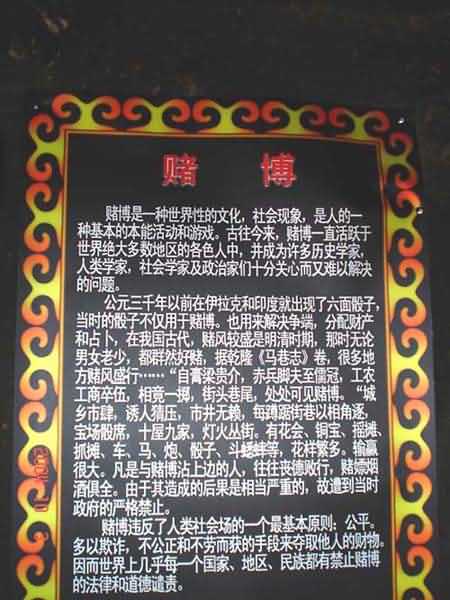 赌 博
赌博是一种世界性的文化，社会现象，是人的一
种基本的本能活动和游戏。古往今来，赌博一直活跃于
世界绝大多数地区的各色人中，并成为许多历史学家，
人类学家，社会学家及政治家们十分关心而又难以解决
的问题。
公元三千年以前在伊拉克和印度就出现了六面骰子，
当时的骰子不仅用于赌博。也用来解决争端，分配财产
和占卜，在我国古代，赌风较盛是明清时期，那时无论
男女老少，都群然好赌，据乾隆《马巷志》卷，很多地
方赌风盛行……“自膏梁贵介，赤兵脚夫至儒冠，工农
工商卒伍，相竟一掷，街头巷尾，处处可见赌博。“城
乡市肆，诱人猜压，市井无赖，每蹲踞街巷以相角逐，
宝场骰席，十屋九家，灯火丛街。有花会、铜宝、摇摊、
抓摊、车、马、炮、骰子、斗蟋蟀等，花样繁多。输赢
很大。凡是与赌博沾上边的人，往往丧德败行，赌嫖烟
酒俱全。由于其造成的后果是相当严重的，故遭到当时
政府的严格禁止。
赌博违反了人类社会场的一个最基本原则：公平。
多以欺诈，不公正和不劳而获的手段来夺取他人的财物。
因而世界上几乎每一个国家、地区、民族都有禁止赌博
的法律和道德谴责。